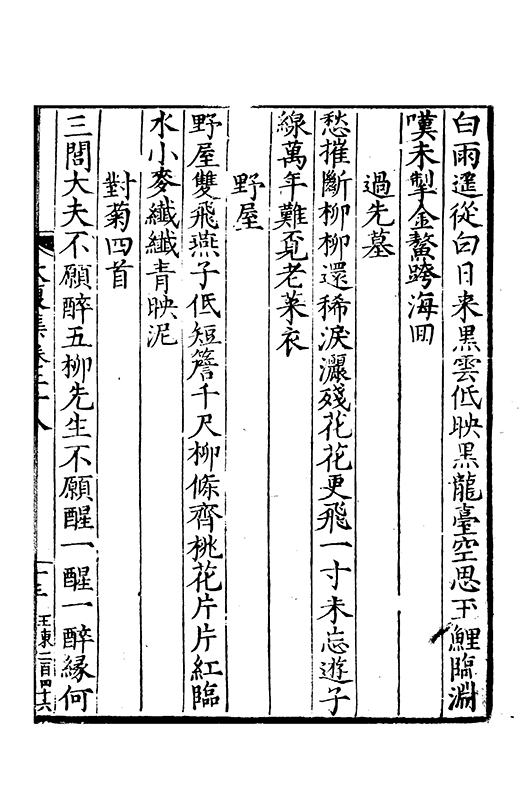 白雨遙從白日来黒雲低映黒龍臺空思玉鯉臨淵
嘆未掣金鰲跨海囬
過先墓
愁摧斷柳柳還稀淚灑殘花花更飛一寸未忘遊子
線萬年難覓老萊衣
野屋
野屋雙飛燕子低短簷千尺柳條齊桃花片片紅臨
水小麥纖纖青映泥
對菊四首
三閭大夫不願醉五柳先生不願醒一醒一醉縁何
十三
王東二百四十六